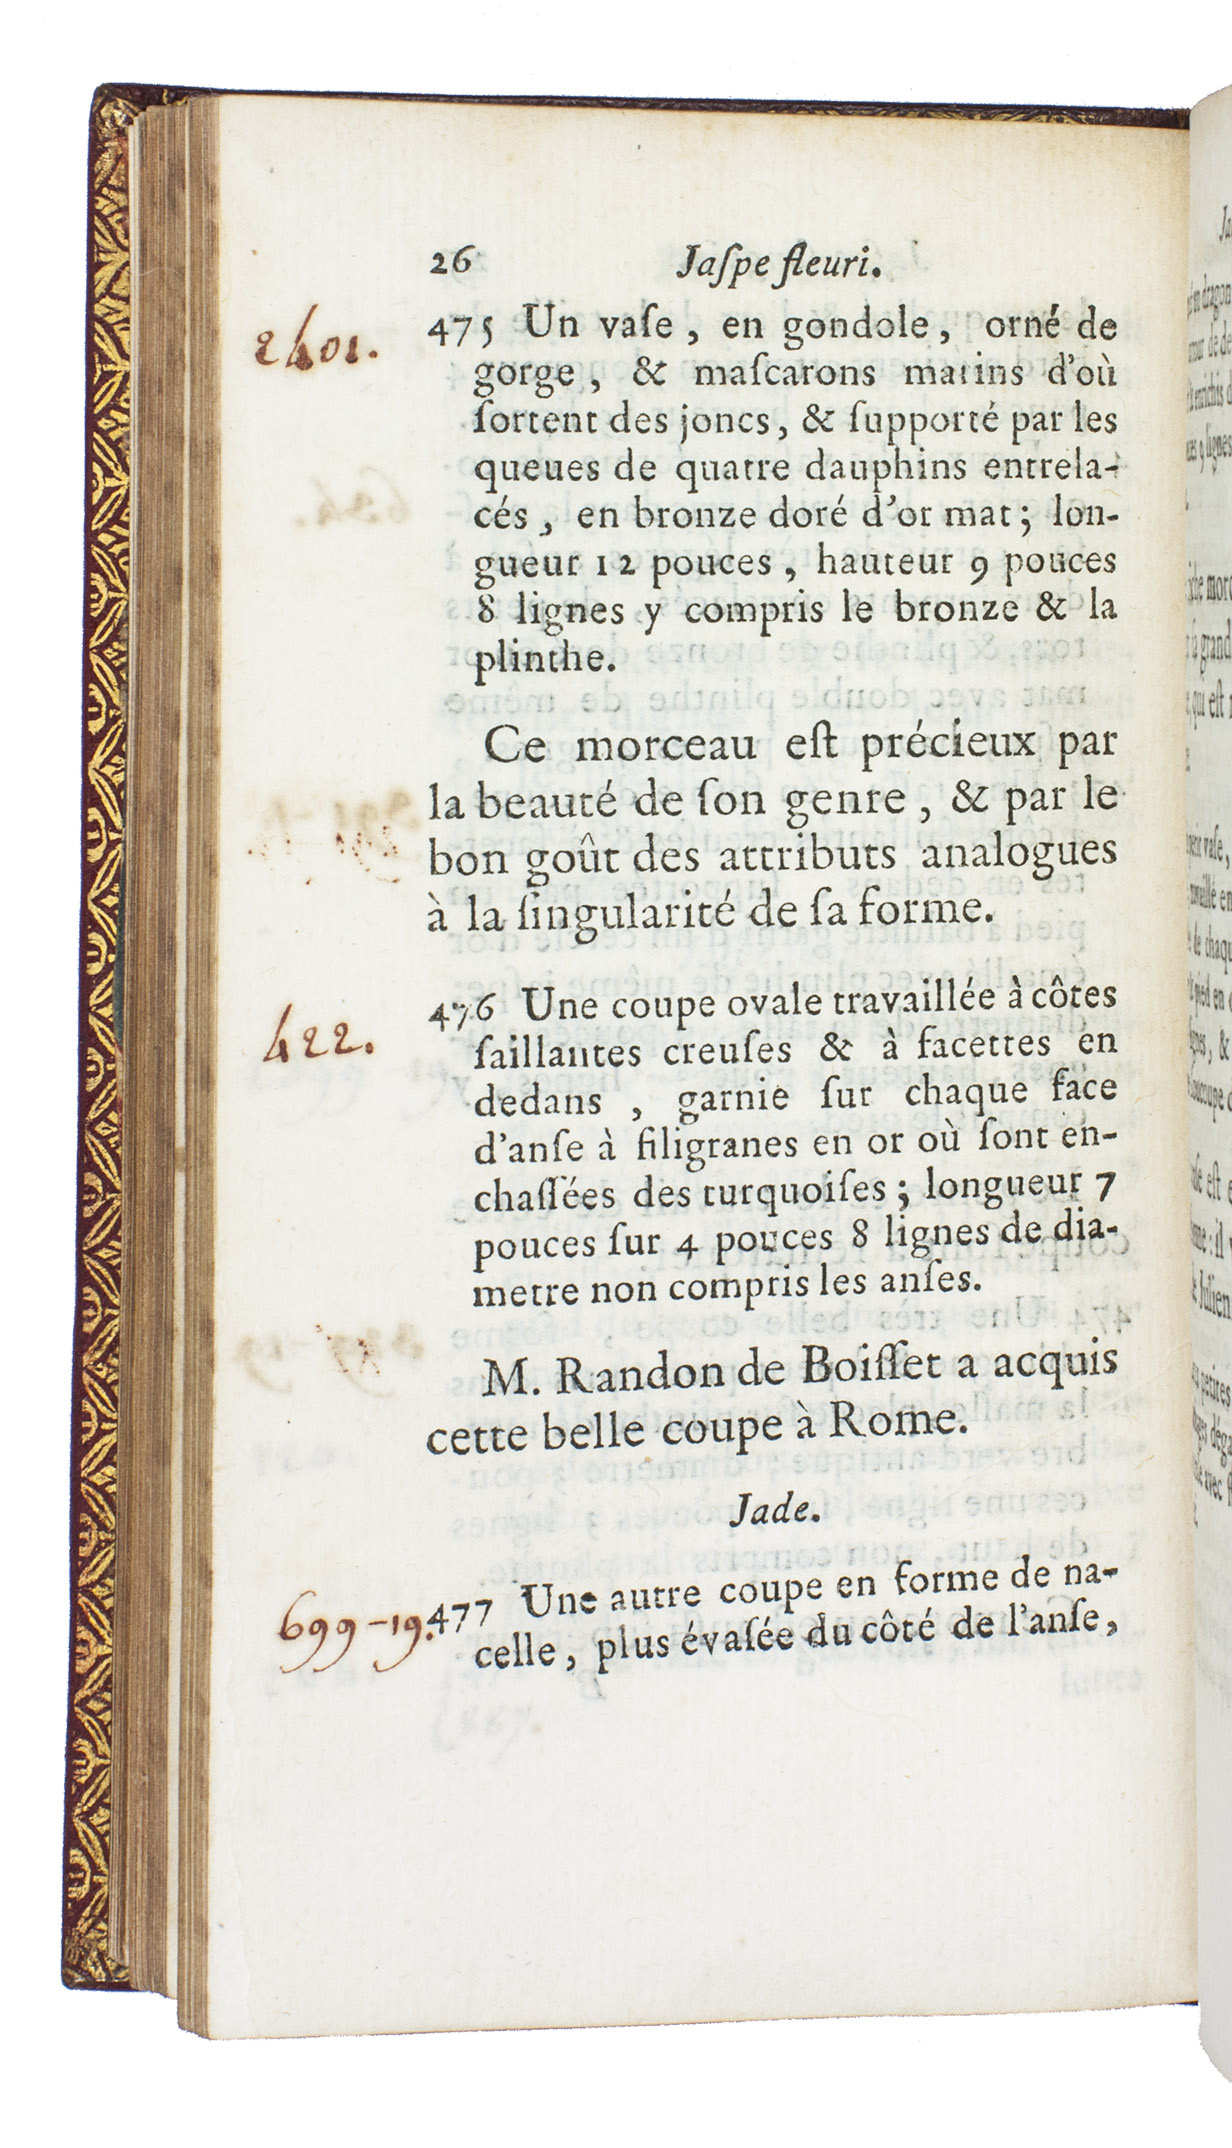 26 Jaſpe fleuri.
2401.
475 Un vaſe, en gondole, orné de
gorge, & maſcarons marins d'où
ſortent des joncs, & ſupporté par les
queues de quatre dauphins entrela-
cés, en bronze doré d'or mat; lon-
gueur 12 pouces, hauteur 9 pouces
8 lignes y compris le bronze & la
plinthe.
Ce morceau eſt précieux par
la beauté de ſon genre, & par le
bon goût des attributs analogues
à la ſingularité de ſa forme.
422.
476 Une coupe ovale travaillée à côtes
ſaillantes creuſes & à facettes en
dedans, garnie ſur chaque face
d'anſe à filigranes en or où ſont en-
chaſſées des turquoiſes; longueur 7
pouces ſur 4 pouces 8 lignes de dia-
metre non compris les anſes.
M. Randon de Boiſſet a acquis
cette belle coupe à Rome.
Jade.
699-19.
477 Une autre coupe en forme de na-
celle, plus évaſée du côté de l'anſe,